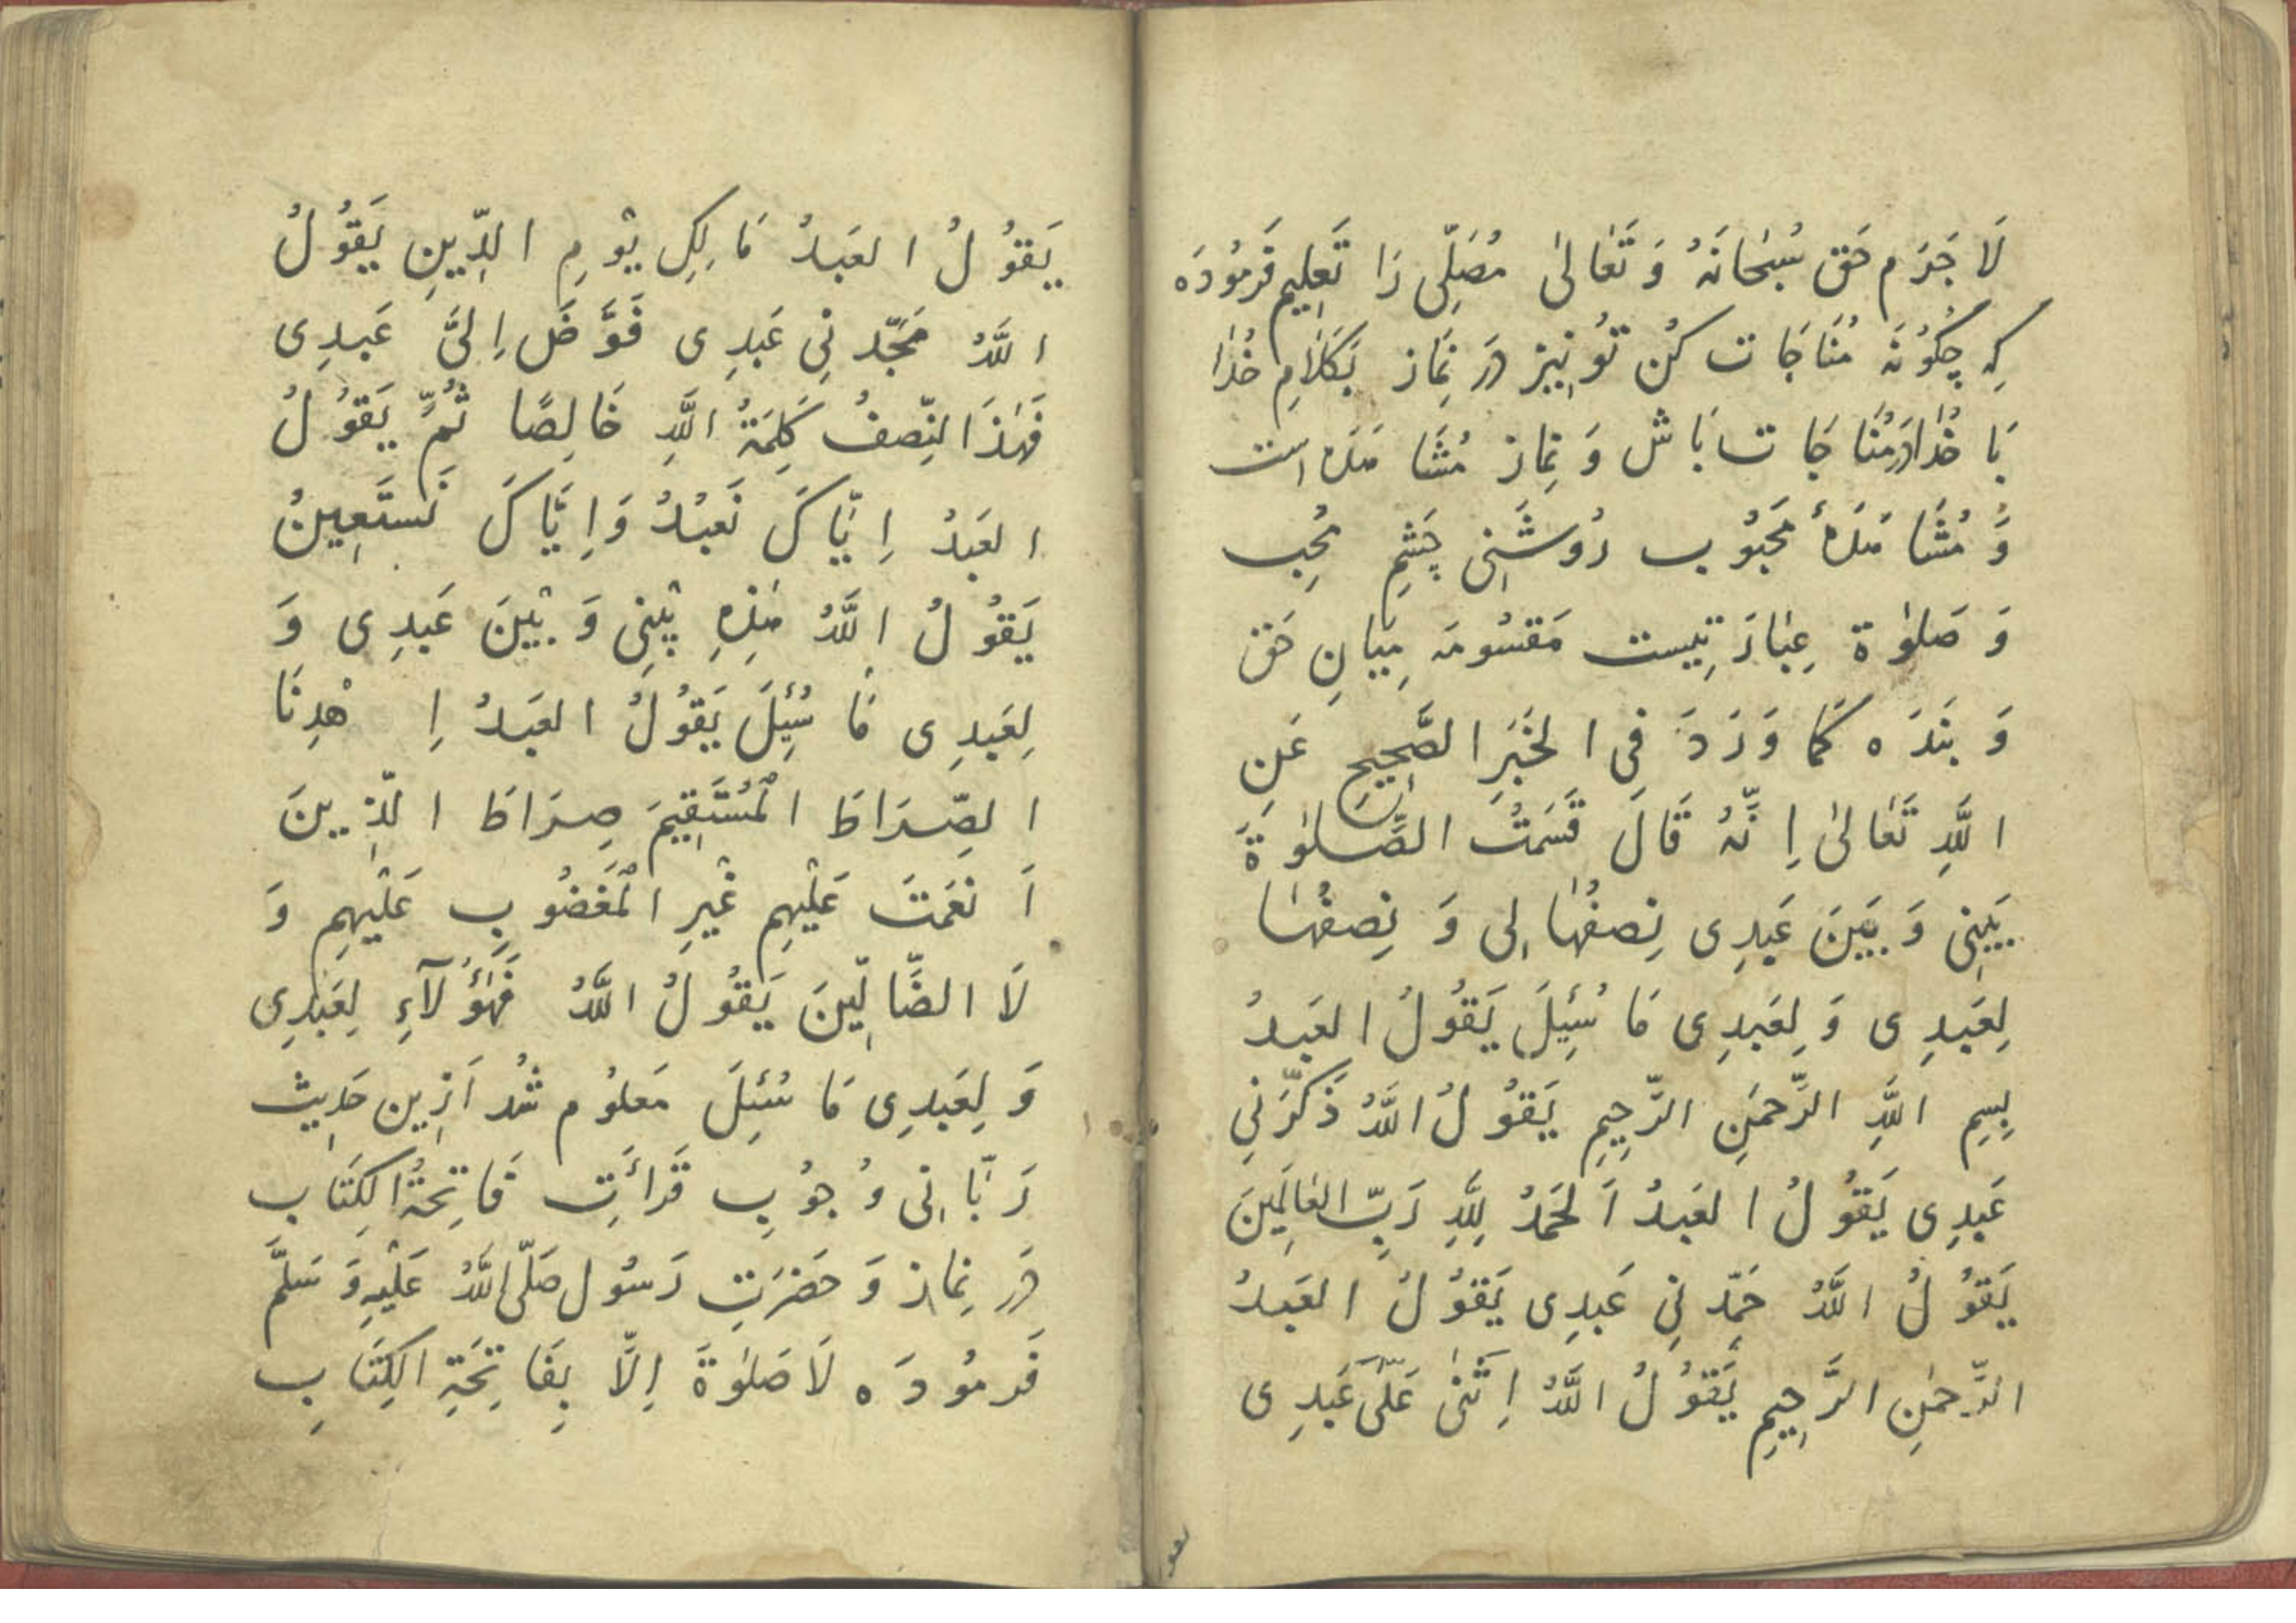 لَا جَرَم حَق سُبْحَانَهُ وَ تَعَالٰی مُصَلِّی رَا تَعلِیم فَرمُودَه
کِه چِکُونَه مُنَاجَات کُن تُو نِیز دَر نَماز بَکَلَامِ خُدَا
بَا خُدَا دَر مُنَاجَات بَاش وَ نِماز مُشَاهَدَه است
وَ مُشَاهَدَهٔ مَحبُوب رُوشَنِی چَشمِ مُحِب
وَ صَلٰوة عِبَادَتِیست مَقسُومَه مِیَانِ حَق
وَ بَندَه کَمَا وَرَدَ فِی الخَبَرِ الصَّحِیحِ عَنِ
اللَّهِ تَعَالٰی اِنَّهُ قَالَ قَسَمتُ الصَّلٰوةَ
بَیِنِی وَ بَینَ عَبدِی نِصفُهَا لِی وَ نِصفُهَا
لِعَبدِی وَ لِعَبدِی مَا سُئِلَ یَقُولُ العَبدُ
بِسمِ اللَّهِ الرَّحمٰنِ الرَّحِیمِ یَقُولُ اللَّهُ ذَکَّرَنِی
عَبدِی یَقُولُ العَبدُ اَلحَمدُ لِلَّهِ رَبِّ العَالَمِینَ
یَقُولُ اللَّهُ حَمِّدنِی عَبدِی یَقُولُ العَبدُ
الرَّحمٰنِ الرَّحِیمِ یَقُولُ اللَّهُ اِثنٰی عَلَیَّ عَبدِی
یَقُولُ العَبدُ مَالِکِ یَوْمِ الدِّینِ یَقُولُ
اللَّهُ مَجَّدنِی عَبدِی فَوَّضَ اِلَیَّ عَبدِی
فَهٰذَا النِّصفُ کَلِمَةُ اللَّهِ خَالِصًا ثُمَّ یَقُولُ
العَبدُ اِیَّاکَ نَعبُدُ وَاِیَّاکَ نَستَعِینُ
یَقُولُ اللَّهُ هٰذِهِ بَیْنِی وَ بَیْنَ عَبدِی وَ
لِعَبدِی مَا سُئِلَ یَقُولُ العَبدُ اِهْدِنَا
الصِّرَاطَ الْمُستَقِیمَ صِرَاطَ الَّذِینَ
اَنعَمتَ عَلَیْهِم غَیْرِ الْمَغضُوبِ عَلَیْهِم وَ
لَا الضَّالِّینَ یَقُولُ اللَّهُ فَهٰؤُلَآءِ لِعَبدِی
وَ لِعَبدِی مَا سُئِلَ مَعلُوم شُد اَزین حَدِیث
رَبَّانِی وُجُوبِ قَرأَتِ فَاتِحَةُ الکِتَاب
دَر نِماز وَ حَضرَتِ رَسُول صَلَّی اللَّهُ عَلَیْهِ وَ سَلَّمَ
فَرمُودَه لَا صَلٰوةَ اِلَّا بِفَاتِحَةِ الکِتَابِ